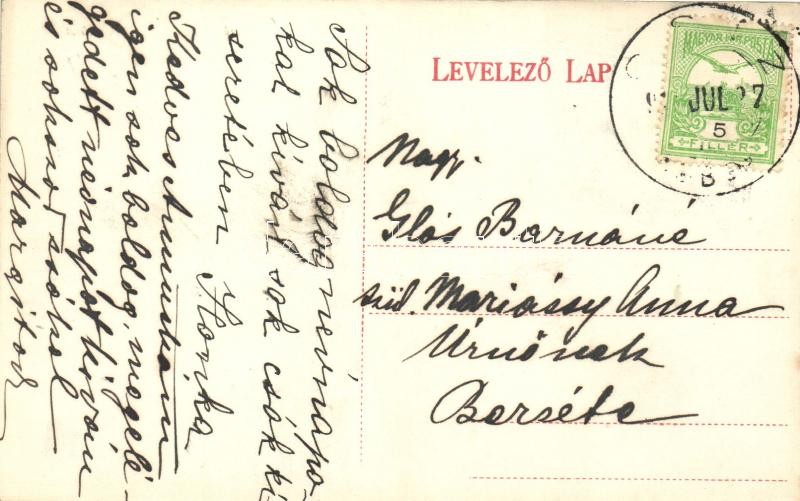 LEVELEZŐ LAP
MAGYAR KIR. POSTA
JUL 27
5
FILLÉR
Nagy.
Glós Barnáné
szül. Mariássy Anna
Úrnőnek
Berséte
Sok boldog névnapo-
kat kíván sok csók ki
seretében
Ilonka
Kedves Annuskám
igen sok boldog, megelé-
gedett névnapot kíván
és sokszor csókol
Margitod